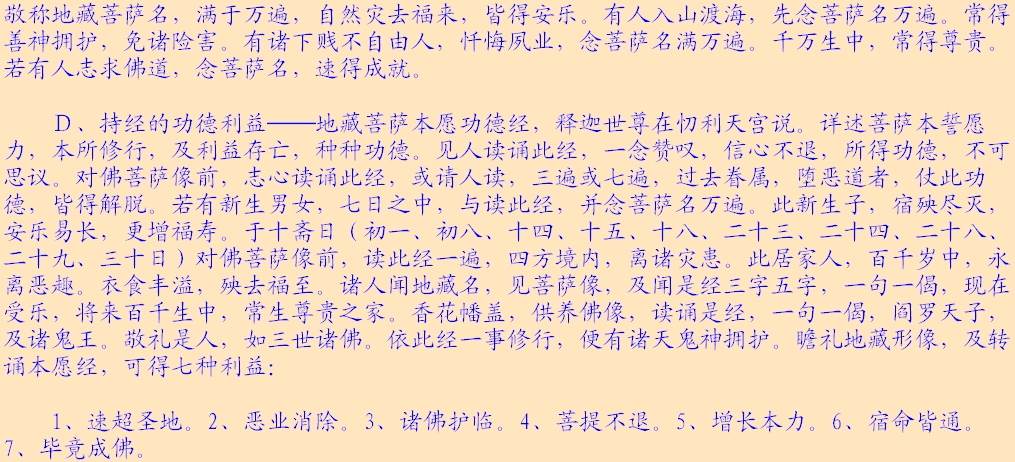 敬称地藏菩萨名，满于万遍，自然灾去福来，皆得安乐。有人入山渡海，先念菩萨名万遍。常得
善神拥护，免诸险害。有诸下贱不自由人，忏悔夙业，念菩萨名满万遍。千万生中，常得尊贵。
若有人志求佛道，念菩萨名，速得成就。
D、持经的功德利益——地藏菩萨本愿功德经，释迦世尊在忉利天宫说。详述菩萨本誓愿
力，本所修行，及利益存亡，种种功德。见人读诵此经，一念赞叹，信心不退，所得功德，不可
思议。对佛菩萨像前，志心读诵此经，或请人读，三遍或七遍，过去眷属，堕恶道者，仗此功
德，皆得解脱。若有新生男女，七日之中，与读此经，并念菩萨名万遍。此新生子，宿殃尽灭，
安乐易长，更增福寿。于十斋日（初一、初八、十四、十五、十八、二十三、二十四、二十八、
二十九、三十日）对佛菩萨像前，读此经一遍，四方境内，离诸灾患。此居家人，百千岁中，永
离恶趣。衣食丰溢，殃去福至。诸人闻地藏名，见菩萨像，及闻是经三字五字，一句一偈，现在
受乐，将来百千生中，常生尊贵之家。香花幡盖，供养佛像，读诵是经，一句一偈，阎罗天子，
及诸鬼王。敬礼是人，如三世诸佛。依此经一事修行，便有诸天鬼神拥护。瞻礼地藏形像，及转
诵本愿经，可得七种利益：
1、速超圣地。2、恶业消除。3、诸佛护临。4、菩提不退。5、增长本力。6、宿命皆通。
7、毕竟成佛。